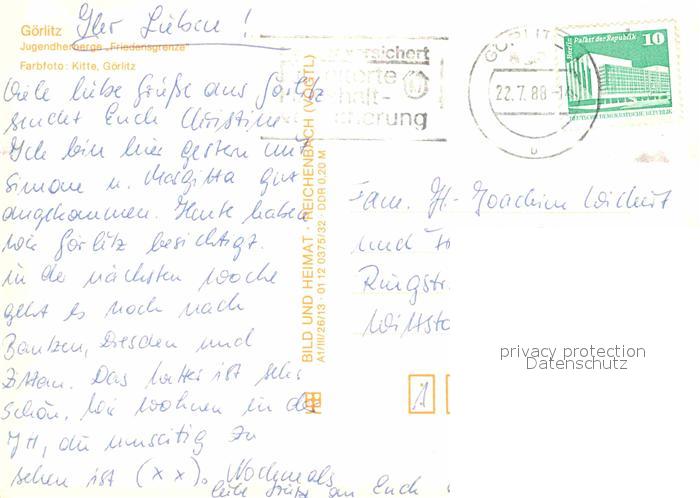 Ihr Lieben!
Görlitz
Jugendherberge „Friedensgrenze"
Farbfoto: Kitte, Görlitz
Viele liebe Grüße aus Görlitz
sendet Euch Christine.
Ich bin hier gestern mit
Simone u. Margitta gut
angekommen. Heute haben
wir Görlitz besichtigt.
in der nächsten Woche
geht es noch nach
Bautzen, Dresden und
Zittau. Das Wetter ist sehr
schön. Wir wohnen in der
JH, die umseitig zu
sehen ist (xx). Nochmals
liebe Grüße an Euch
BILD UND HEIMAT · REICHENBACH (VOGTL)
A1/III/26/13 01 12 0375/32 DDR 0,20 M
versichert
GÖRLITZ
22.7.88
Berlin Palast der Republik
10
DEUTSCHE DEMOKRATISCHE REPUBLIK
Fam. H.-Joachim Wichert
und
Ringstr.
Wittsto
1
privacy protection
Datenschutz